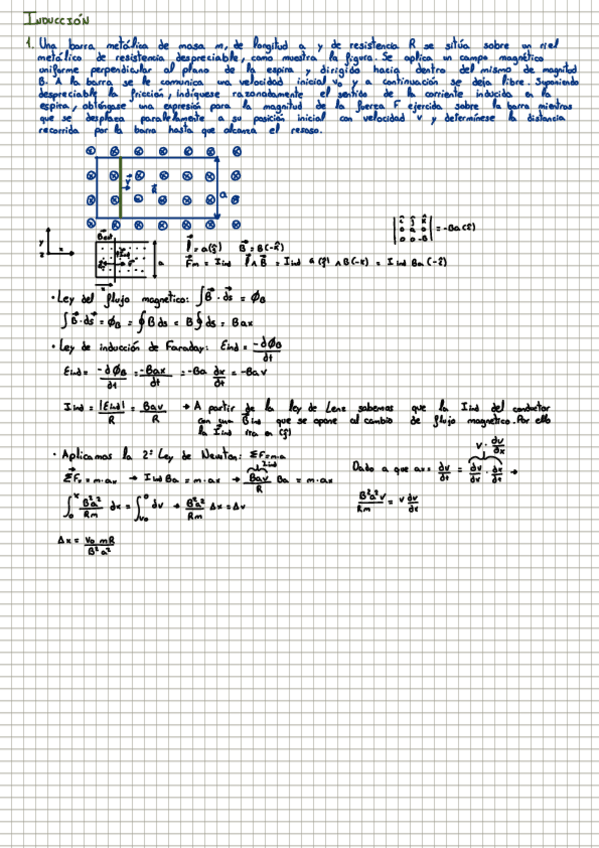 INDUCCIÓN
1. Una barra metálica de masa m, de longitud a y de resistencia R se sitúa sobre un riel
metálico de resistencia despreciable, como muestra la figura. Se aplica un campo magnético
uniforme perpendicular al plano de la espira y dirigido hacia dentro del mismo de magnitud
B. A la barra se le comunica una velocidad inicial v₀ y a continuación se deja libre. Suponiendo
despreciable la fricción, indíquese razonadamente el sentido de la corriente inducida en la
espira, obténgase una expresión para la magnitud de la fuerza F ejercida sobre la barra mientras
que se desplaza paralelamente a su posición inicial con velocidad v y determínese la distancia
recorrida por la barra hasta que alcanza el reposo.
a
y
x
z
a
x
l = a(ĵ) B = B(-k̂)
Fm = Iind l ∧ B = Iind a(ĵ) ∧ B(-k) = Iind Ba(-î)
î ĵ k̂
0 a 0
0 0 -B
= -Ba(î)
• Ley del flujo magnético: ∫B·ds = ϕB
∫B·ds = ϕB = ∮B ds = B∮ds = Bax
• Ley de inducción de Faraday: Eind = -dϕB/dt
Eind = -dϕB/dt = -Bax/dt = -Ba dx/dt = -Bav
Iind = |Eind|/R = Bav/R → A partir de la ley de Lenz sabemos que la Iind del conductor
Bind que se opone al cambio de flujo magnético. Por ello
la Iind ira en (ĵ)
• Aplicamos la 2ª Ley de Newton: ΣF=m·a
ΣFx = m·ax → Iind Ba = m·ax → Bav/R Ba = m·ax
Iind
Dado a que ax = dv/dt = dv/dx · dx/dt →
v· dv/dx
∫₀ˣ B²a²/Rm dx = ∫v₀⁰ dv → B²a²/Rm Δx = Δv
B²a²v/Rm = v dv/dx
Δx = v₀mR/B²a²